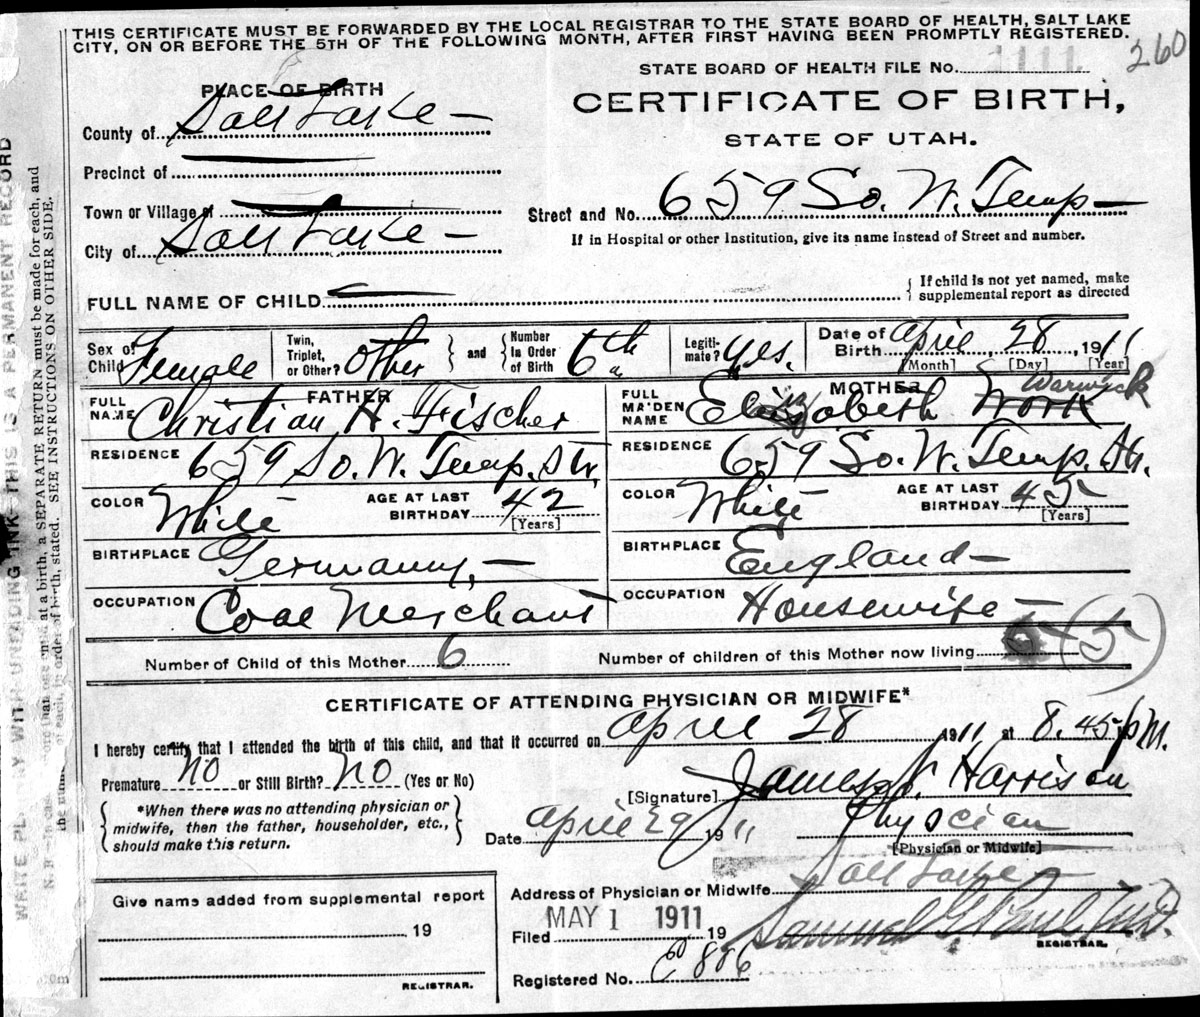 THIS CERTIFICATE MUST BE FORWARDED BY THE LOCAL REGISTRAR TO THE STATE BOARD OF HEALTH, SALT LAKE
CITY, ON OR BEFORE THE 5TH OF THE FOLLOWING MONTH, AFTER FIRST HAVING BEEN PROMPTLY REGISTERED.
260
STATE BOARD OF HEALTH FILE No. 1111
PLACE OF BIRTH
CERTIFICATE OF BIRTH,
STATE OF UTAH.
County of Salt Lake —
Precinct of
Town or Village of
Street and No. 659 So. W. Temp —
City of Salt Lake —
If in Hospital or other Institution, give its name instead of Street and number.
FULL NAME OF CHILD
If child is not yet named, make
supplemental report as directed
Sex of Child Female
Twin, Triplet, or Other? Other
and
Number in Order of Birth 6th
Legiti- mate? Yes.
Date of Birth April 28, 1911
[Month] [Day] [Year]
FATHER
MOTHER
FULL NAME Christian H. Fischer
FULL MAIDEN NAME Elizabeth Work Warwick
RESIDENCE 659 So. W. Temp. Str.
RESIDENCE 659 So. W. Temp. Str.
COLOR White
AGE AT LAST BIRTHDAY 42 [Years]
COLOR White
AGE AT LAST BIRTHDAY 45 [Years]
BIRTHPLACE Germany, —
BIRTHPLACE England —
OCCUPATION Coal Merchant
OCCUPATION Housewife —
Number of Child of this Mother 6
Number of children of this Mother now living (5)
CERTIFICATE OF ATTENDING PHYSICIAN OR MIDWIFE*
I hereby certify that I attended the birth of this child, and that it occurred on April 28 1911 at 8.45 pM.
Premature No or Still Birth? No (Yes or No)
[Signature] James J. Harrison
*When there was no attending physician or
midwife, then the father, householder, etc.,
should make this return.
Date April 29 1911
Physician
[Physician or Midwife]
Address of Physician or Midwife Salt Lake
Give name added from supplemental report
19
REGISTRAR.
Filed MAY 1 1911 19
Samuel G. Paul M.D.
REGISTRAR.
Registered No. 886
WRITE PLAINLY WITH UNFADING INK-THIS IS A PERMANENT RECORD
at a birth, a SEPARATE RETURN must be made for each, and
of birth, stated. SEE INSTRUCTIONS ON OTHER SIDE.